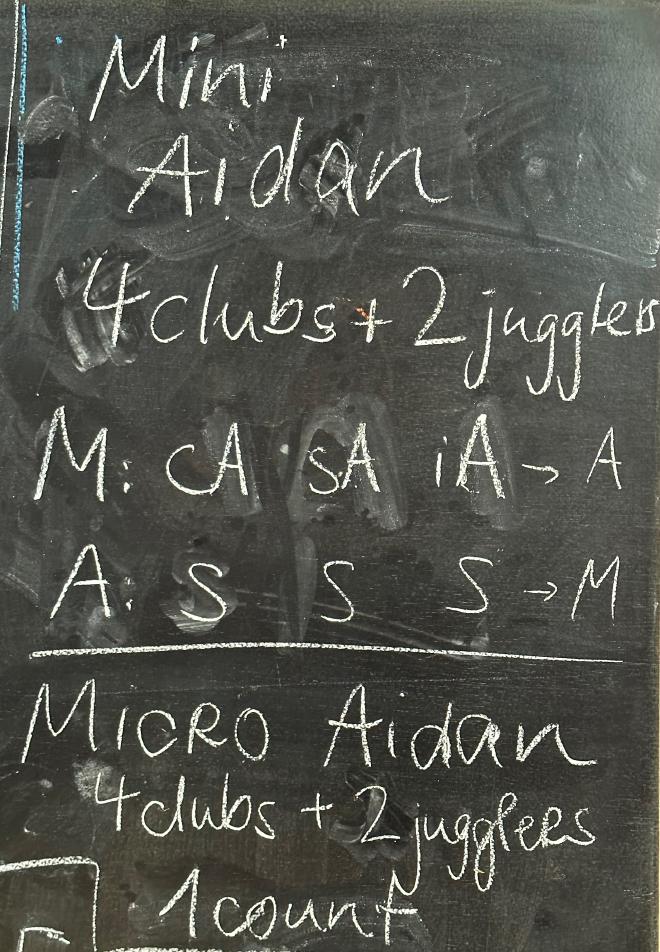 Mini
Aidan
4 clubs + 2 jugglers
M: cA sA iA → A
A: S S S → M
MICRO Aidan
4 clubs + 2 jugglers
1 count